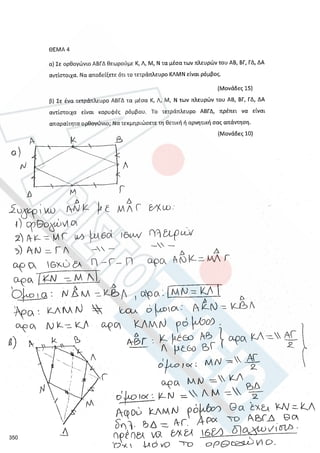 ΘΕΜΑ 4
α) Σε ορθογώνιο ΑΒΓΔ θεωρούμε Κ, Λ, Μ, Ν τα μέσα των πλευρών του ΑΒ, ΒΓ, ΓΔ, ΔΑ
αντίστοιχα. Να αποδείξετε ότι το τετράπλευρο ΚΛΜΝ είναι ρόμβος.
(Μονάδες 15)
β) Σε ένα τετράπλευρο ΑΒΓΔ τα μέσα Κ, Λ, Μ, Ν των πλευρών του ΑΒ, ΒΓ, ΓΔ, ΔΑ
αντίστοιχα είναι κορυφές ρόμβου. Το τετράπλευρο ΑΒΓΔ, πρέπει να είναι
απαραίτητα ορθογώνιο; Να τεκμηριώσετε τη θετική ή αρνητική σας απάντηση.
(Μονάδες 10)
α)
Α Κ Β
Ν Λ
Δ Μ Γ
Συγκρίνω ΑΝΚ με ΜΛΓ έχω:
1) ορθογώνια
2) ΑΚ = ΜΓ ως μισά ίσων πλευρών
3) ΑΝ = ΓΛ —〃— —〃—
άρα ισχύει Π-Γ-Π άρα ΑΝΚ = ΜΛΓ
άρα ΚΝ = ΜΛ
Όμοια: ΝΔΜ = ΚΒΛ, άρα: ΜΝ = ΚΛ
Άρα: ΚΛΜΝ # και όμοια: ΑΚΝ = ΚΒΛ
άρα ΝΚ = ΚΛ άρα ΚΛΜΝ ρόμβος.
β)
Α Κ Β
Λ
Ν Γ
Μ
Δ
ΑΒΓ: Κ μέσο ΑΒ
Λ μέσο ΒΓ } άρα ΚΛ = // ΑΓ/2
όμοια: ΜΝ = // ΑΓ/2
άρα ΜΝ = // ΚΛ
όμοια: ΚΝ = // ΛΜ = // ΒΔ/2
Αφού ΚΛΜΝ ρόμβος θα έχει ΚΝ = ΚΛ
δηλ. ΒΔ = ΑΓ. Άρα το ΑΒΓΔ θα
πρέπει να έχει ίσες διαγωνίους.
Όχι μόνο το ορθογώνιο.
350